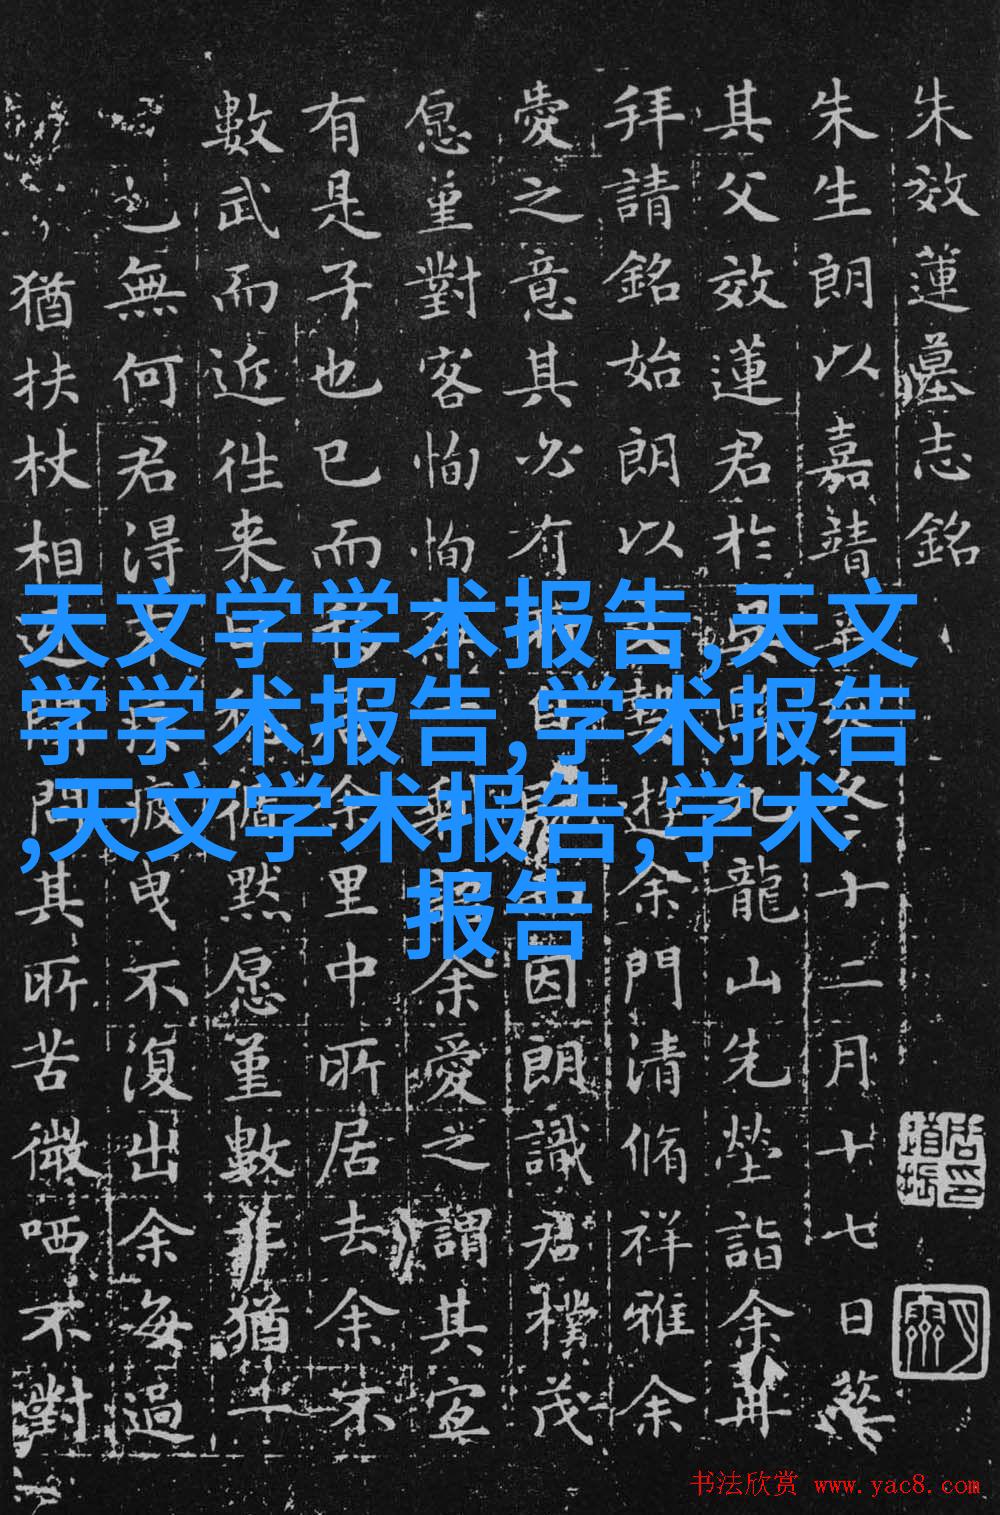 朱效蓮墓志銘
朱生朗以嘉靖冬十二月十七日葬
其父效蓮君於九龍山先塋詣余再
拜請銘始朗以遊余門清脩祥雅余
愛之意其必有自因朗識君穆茂
愿重對客恂恂余愛之謂其宜
有是子也已而余里中所居去余不
數武而近往来循默愿重數猶一
也無何君得疲曳不復出余每過
猶扶杖相門其所苦微哂不對
天文学学术报告,天文
学学术报告,学术报告
,天文学术报告,学术
报告
书法欣赏 www.yac8.com